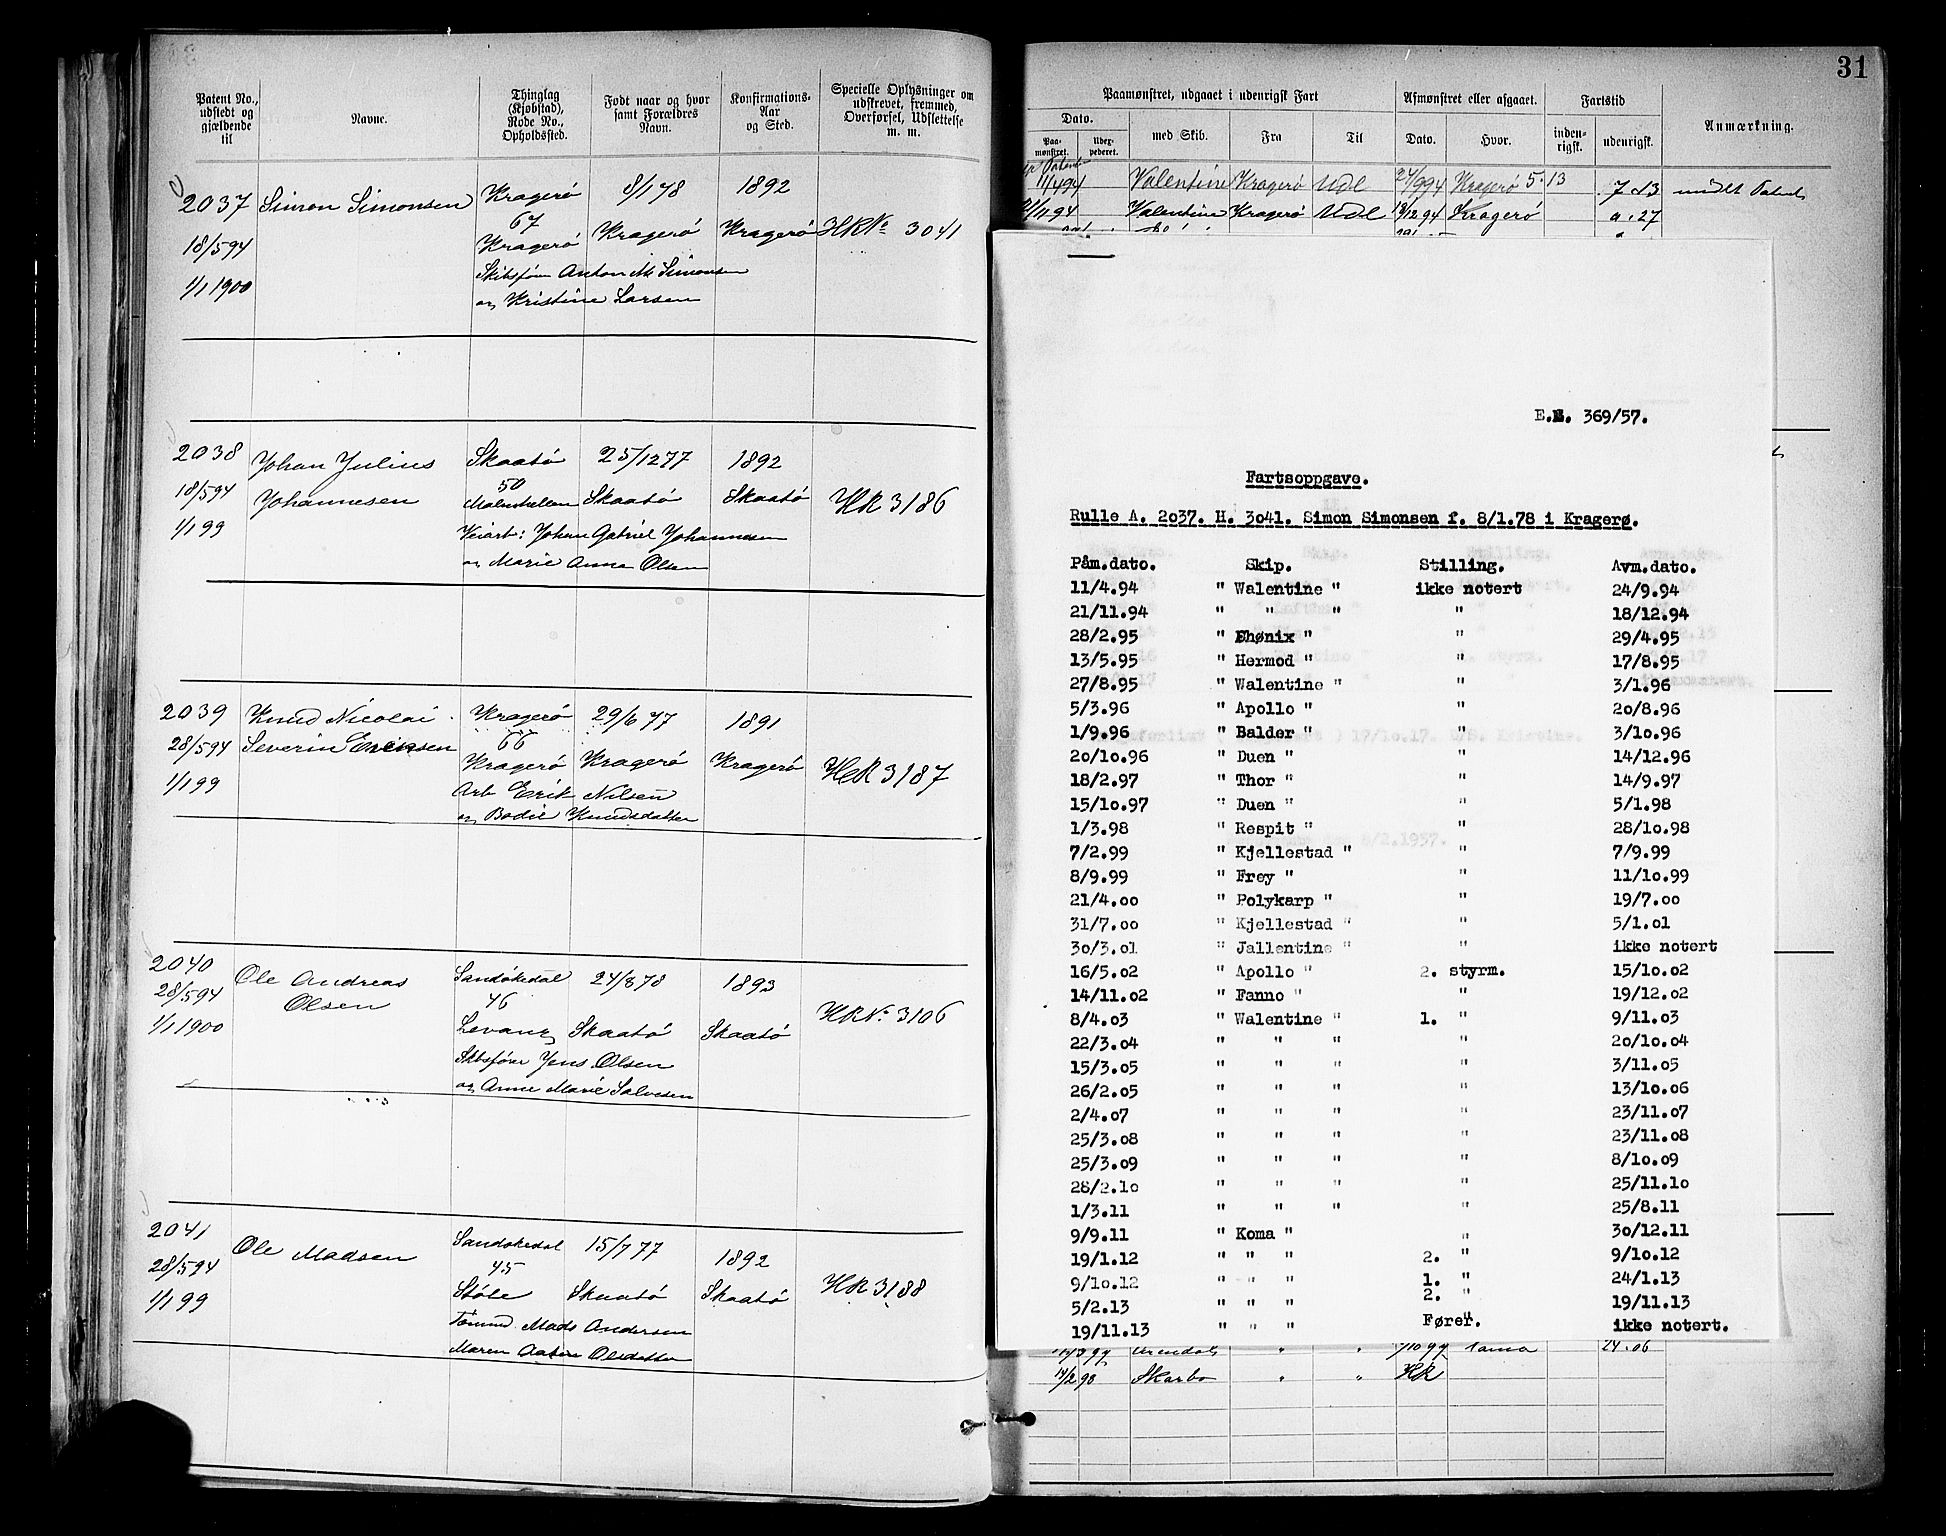 Patent No., udstedt og gjældende til
Navne.
Thinglag (Kjøbstad), Rode No., Opholdssted.
Født naar og hvor samt Forældres Navn.
Konfirmations-Aar og Sted.
Specielle Oplysninger om udskrevet, fremmed, Overførsel, Udslettelse m. m.
2037 Simon Simonsen Kragerö 8/1 78 1892
67
18/5 94 Kragerö Kragerö Kragerö HR No 3041
Skibsförer Anton M. Simonsen
1/1 1900 og Kristine Larsen
2038 Johan Julius Skaatö 25/12 77 1892
50
18/5 94 Johannesen Skaatö Skaatö HR 3186
1/1 99 Veiarb: Johan Gabriel Johannesen
og Marie Anna Olsen
2039 Knud Nicolai Kragerö 29/6 77 1891
66
28/5 94 Severin Eriksen
1/1 99 Kragerö Kragerö Kragerö HR 3187
Arb Erik Nilsen
og Bodil Knudsdatter
2040 Ole Andreas Sandökedal 24/8 78 1893
28/5 94 Olsen 46
1/1 1900 Levang Skaatö Skaatö HR No. 3106
Skbsförer Jens Olsen
og Anne Marie Salvesen
2041 Ole Madsen Sandökedal 15/7 77 1892
28/5 94 45
1/1 99 Stöle Skaatö Skaatö HR 3188
Tömmd. Mads Andersen
Maren Aasine Olsdatter
31
Paamønstret, udgaaet i udenrigsk Fart
Afmønstret eller afgaaet.
Fartstid
Anmærkning.
Dato.
Paamønstret.
Udexpederet.
med Skib.
Fra
Til
Dato.
Hvor.
indenrigsk.
udenrigsk.
11/4 94 Valentine Kragerö Udl 24/9 94 Kragerö 5.13 7.13
21/11 94 Valentine Kragerö Udl 18/12 94 Kragerö 0.27
E.E. 369/57.
Fartsoppgave.
Rulle A. 2037. H. 3041. Simon Simonsen f. 8/1.78 i Kragerø.
Påm.dato. Skip. Stilling. Avm.dato.
11/4.94 " Walentine " ikke notert 24/9.94
21/11.94 " " " " 18/12.94
28/2.95 " Fhønix " " 29/4.95
13/5.95 " Hermod " " 17/8.95
27/8.95 " Walentine " " 3/1.96
5/3.96 " Apollo " " 20/8.96
1/9.96 " Balder " " 3/10.96
20/10.96 " Duen " " 14/12.96
18/2.97 " Thor " " 14/9.97
15/10.97 " Duen " " 5/1.98
1/3.98 " Respit " " 28/10.98
7/2.99 " Kjellestad " " 7/9.99
8/9.99 " Frey " " 11/10.99
21/4.00 " Polykarp " " 19/7.00
31/7.00 " Kjellestad " " 5/1.01
30/3.01 " Jallentine " " ikke notert
16/5.02 " Apollo " 2. styrm. 15/10.02
14/11.02 " Fanno " " 19/12.02
8/4.03 " Walentine " 1. " 9/11.03
22/3.04 " " " " 20/10.04
15/3.05 " " " " 3/11.05
26/2.05 " " " " 13/10.06
2/4.07 " " " " 23/11.07
25/3.08 " " " " 23/11.08
25/3.09 " " " " 8/10.09
28/2.10 " " " " 25/11.10
1/3.11 " " " " 25/8.11
9/9.11 " Koma " " 30/12.11
19/1.12 " " " 2. " 9/10.12
9/10.12 " " " 1. " 24/1.13
5/2.13 " " " 2. " 19/11.13
19/11.13 " " " Fører. ikke notert.
Arendal 24.06
14/2 98 Skarbo " " HR